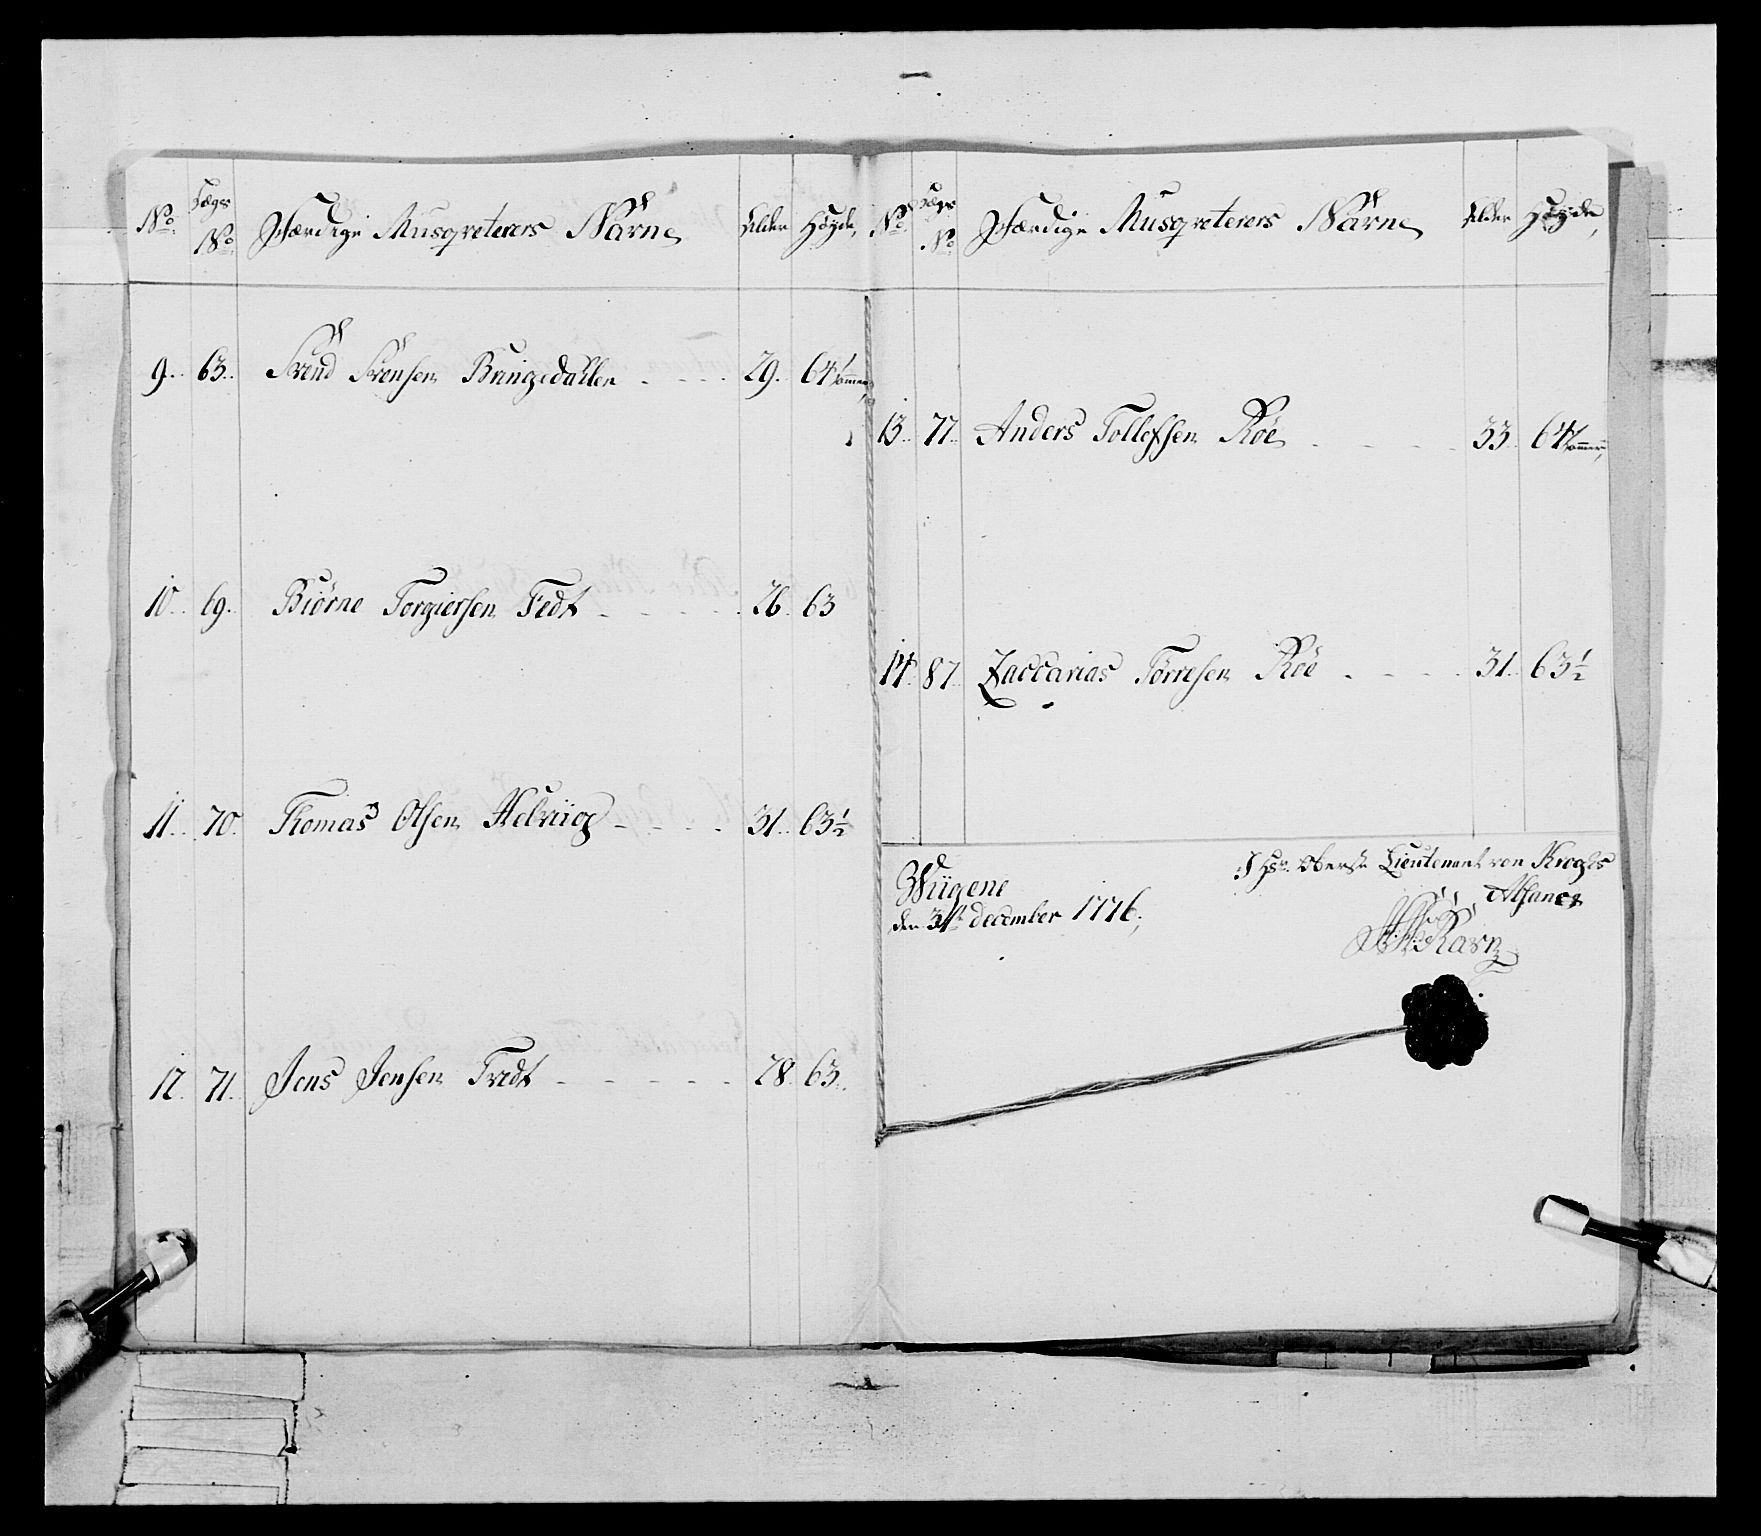 No. Lægs No. Færdige Musqveterers Navne Alder Høyde,
9. 63. Svend Svensen Bringedallen 29. 64 1/ tommer,
10. 69. Biörne Torgiersen Fedt 26. 63
11. 70. Thomas Olsen Helvüg 31. 63 1/2
12. 71. Jens Jensen Fedt 28. 63.
No. Lægs No. Færdige Musqveterers Navne Alder Høyde,
13. 77. Anders Tollefsen Röe 33. 64 tommer,
14. 87. Zaccarias Törresen Röe 31. 63 1/2
den 31te december 1776,
I Hr. Oberst Lieutenant von Kroghs
Afsance
Ravn